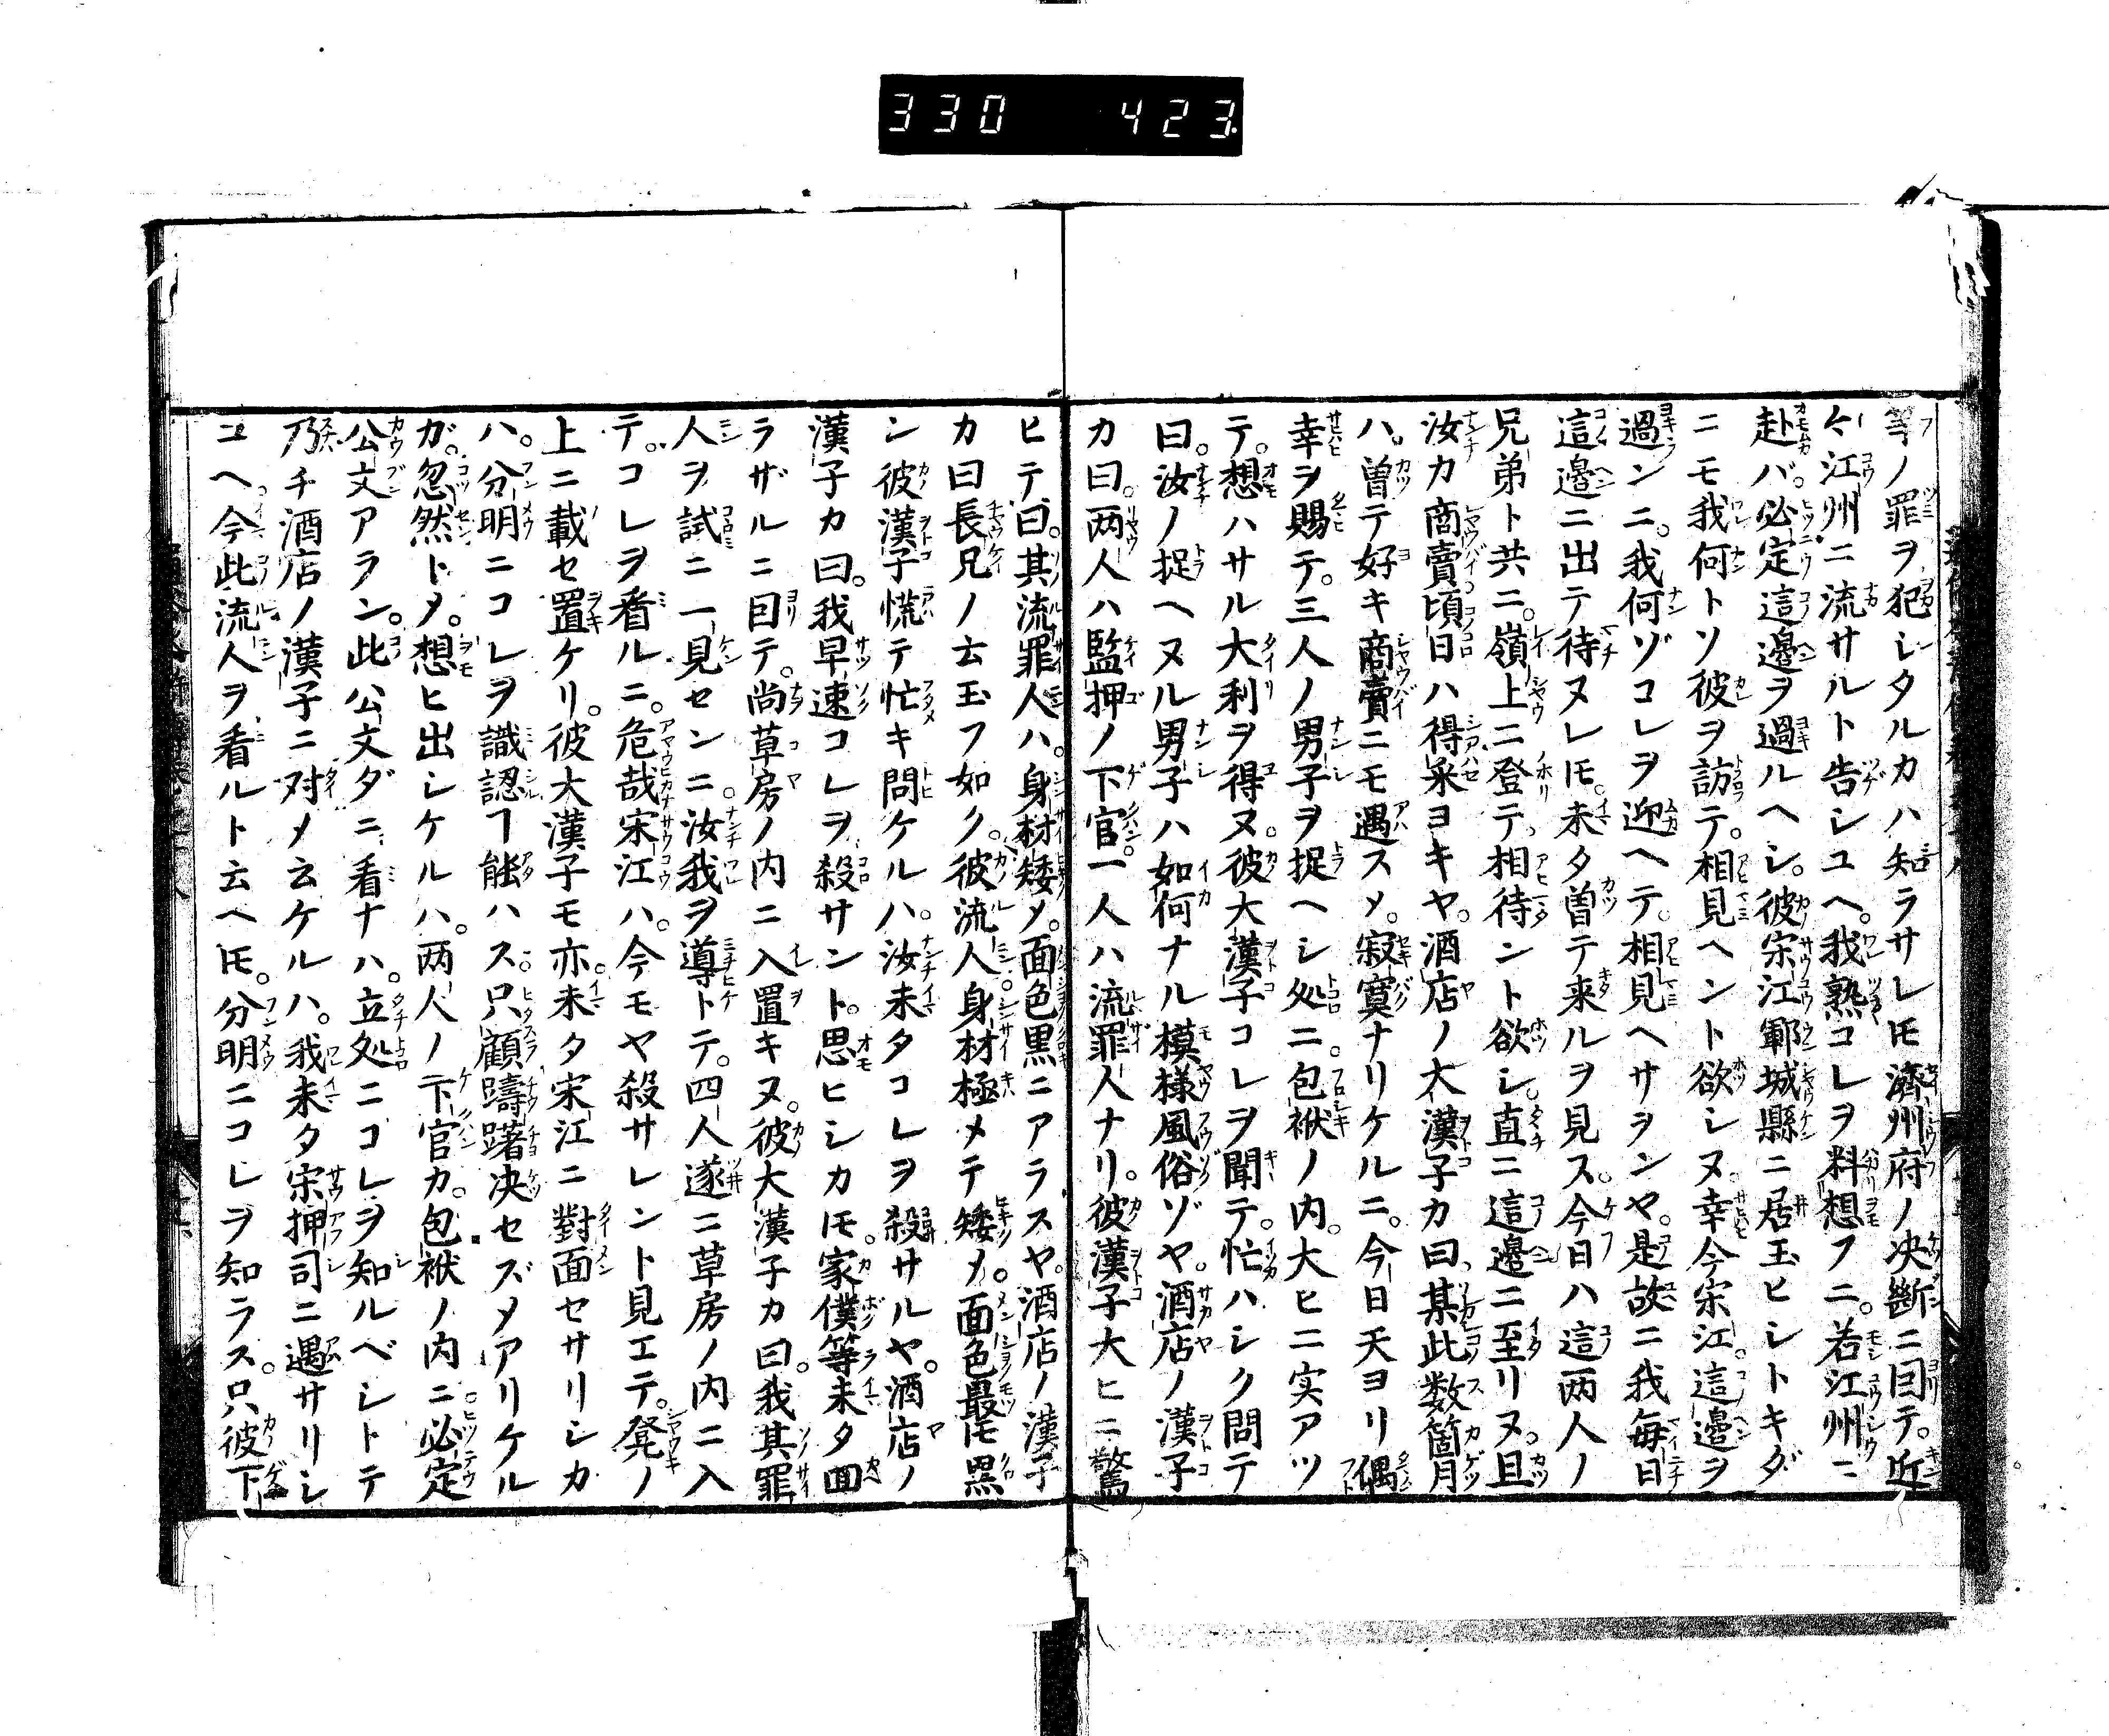 330 423
等ノ罪ヲ犯シタルカハ知ラサレ𪜈濟州府ノ决斷ニ因テ。近
ケ江州ニ流サルト告シユヘ。我熟コレヲ料想フニ。若江州ニ
赴バ。必定這邊ヲ過ルヘシ。彼宋江鄆城縣ニ居玉ヒシトキダ
ニモ我何トソ彼ヲ訪テ。相見ヘント欲シヌ。幸今宋江這邊ヲ
過ンニ。我何ゾコレヲ迎ヘテ。相見ヘサヲンヤ。是故ニ我毎日
這邊ニ出テ待ヌレ𪜈。未タ曽テ来ルヲ見ス。今日ハ這两人ノ
兄弟ト共ニ。嶺上ニ登テ相待ント欲シ。直ニ這邊ニ至リヌ。且
汝カ商賣頃日ハ得采ヨキヤ。酒店ノ大漢子カ曰。某此数箇月
ハ。曽テ好キ商賣ニモ遇スメ。寂寞ナリケルニ。今日天ヨリ偶
幸ヲ賜テ。三人ノ男子ヲ捉ヘシ処ニ。包袱ノ内。大ヒニ実アツ
テ。想ハサル大利ヲ得ヌ。彼大漢子コレヲ聞テ。忙ハシク問テ
曰。汝ノ捉ヘヌル男子ハ如何ナル模様風俗ゾヤ。酒店ノ漢子
カ曰。两人ハ監押ノ下官。一人ハ流罪人ナリ。彼漢子大ヒニ驚
ヒテ曰。其流罪人ハ。身材矮メ。面色黒ニアラスヤ。酒店ノ漢子
カ曰長兄ノ云玉フ如ク。彼流人身材極メテ矮メ。面色最𪜈黒
シ彼漢子慌テ忙キ問ケルハ。汝未タコレヲ殺サルヤ。酒店ノ
漢子カ曰。我早速コレヲ殺サント。思ヒシカ𪜈。家僕等未タ回
ラザルニ因テ。尚草房ノ内ニ入置キヌ。彼大漢子カ曰。我其罪
人ヲ試ニ一見センニ。汝我ヲ導トテ。四人遂ニ草房ノ内ニ入
テ。コレヲ看ルニ。危哉宋江ハ。今モヤ殺サレント見エテ。凳ノ
上ニ載セ置ケリ。彼大漢子モ亦。未タ宋江ニ對面セサリシカ
ハ。分明ニコレヲ識認ヿ能ハス。只顧躊躇决セズメアリケル
ガ。忽然トメ。想ヒ出シケルハ。两人ノ下官カ。包袱ノ内ニ必定
公文アラン。此公文ダニ看ナハ。立処ニコレヲ知ルベシトテ
乃チ酒店ノ漢子ニ对メ云ケルハ。我未タ宋押司ニ遇サリシ
ユヘ。今此流人ヲ看ルト云ヘ𪜈。分明ニコレヲ知ラス。只彼下